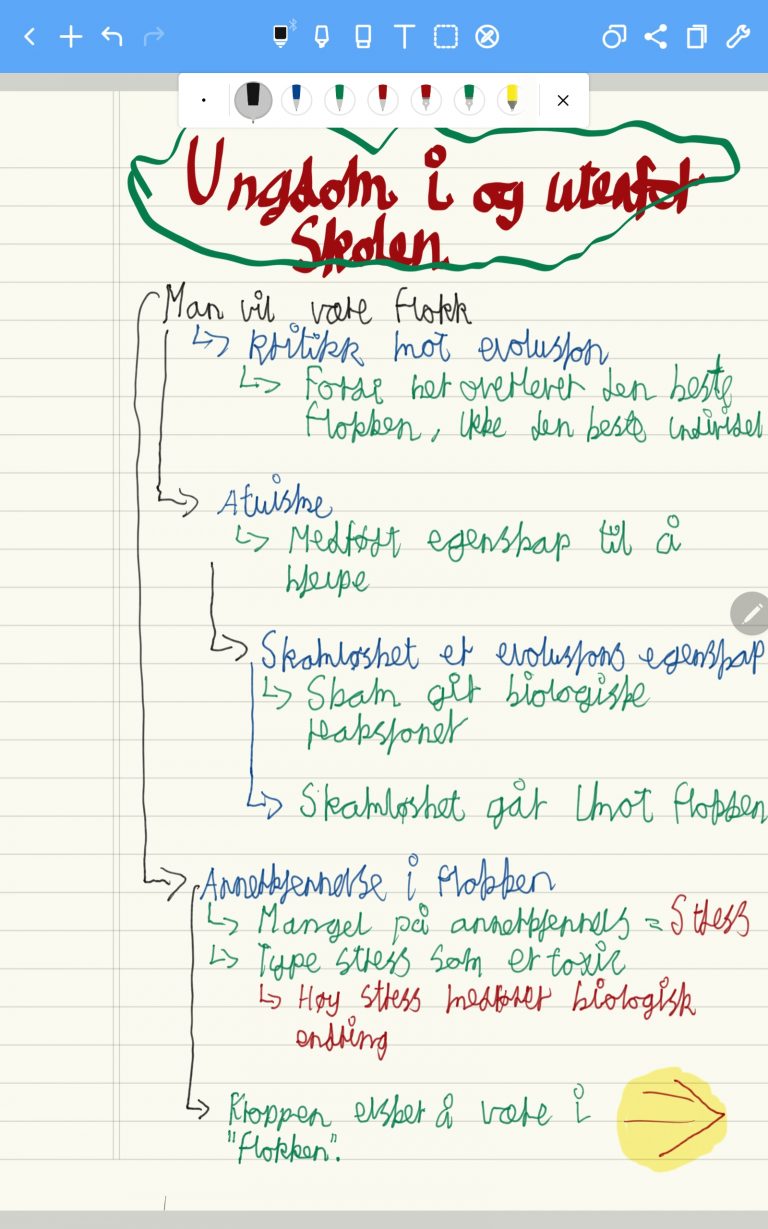 Ungdom i og utenfor
Skolen
Man vil være flokk
Kritikk mot evolusjon
Forsi her overlever den beste
flokken, ikke den beste individet
Atuisme
Medfødt egenskap til å
hjelpe
Skamløshet er evolusjons egenskap
Skam gir biologiske
reaksjoner
Skamløshet går imot flokken
Annerkjennelse i flokken
Mangel på annerkjennels = Stress
Type stress som er toxic
Høy stress medfører biologisk
endring
Kroppen elsker å være i
"flokken".